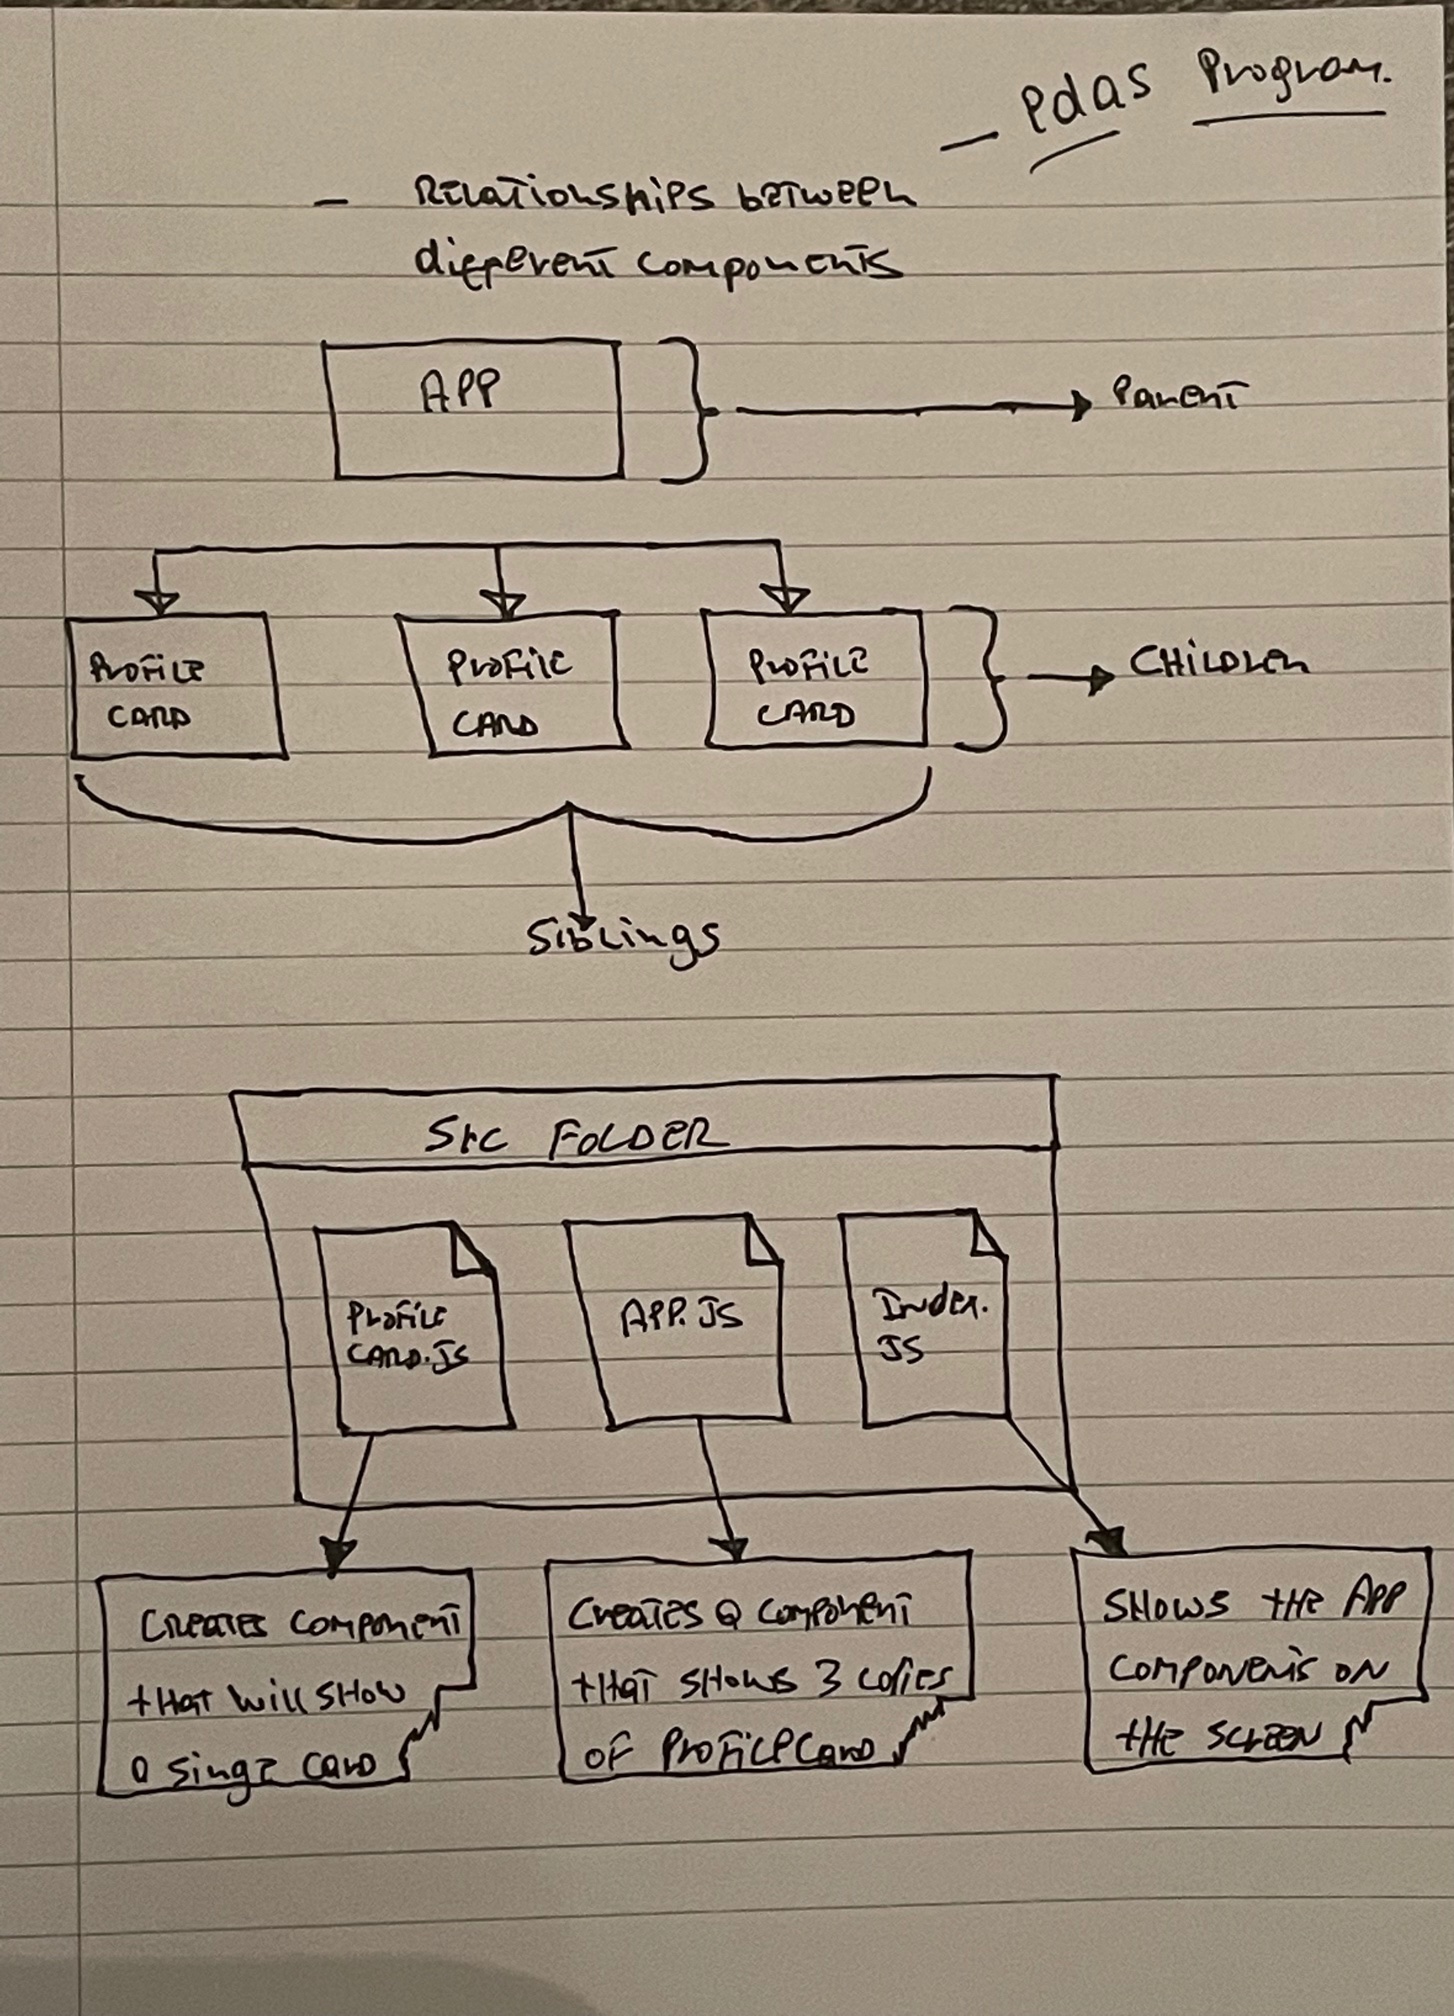 - Pdas Program.
- Relationships between
different components
APP
Parent
Profile
Card
Profile
Card
Profile
Card
Children
Siblings
Src Folder
Profile
Card.JS
App.JS
Index.
JS
Creates component
that will show
a singe card
Creates a component
that shows 3 copies
of ProfileCard
Shows the App
components on
the screen